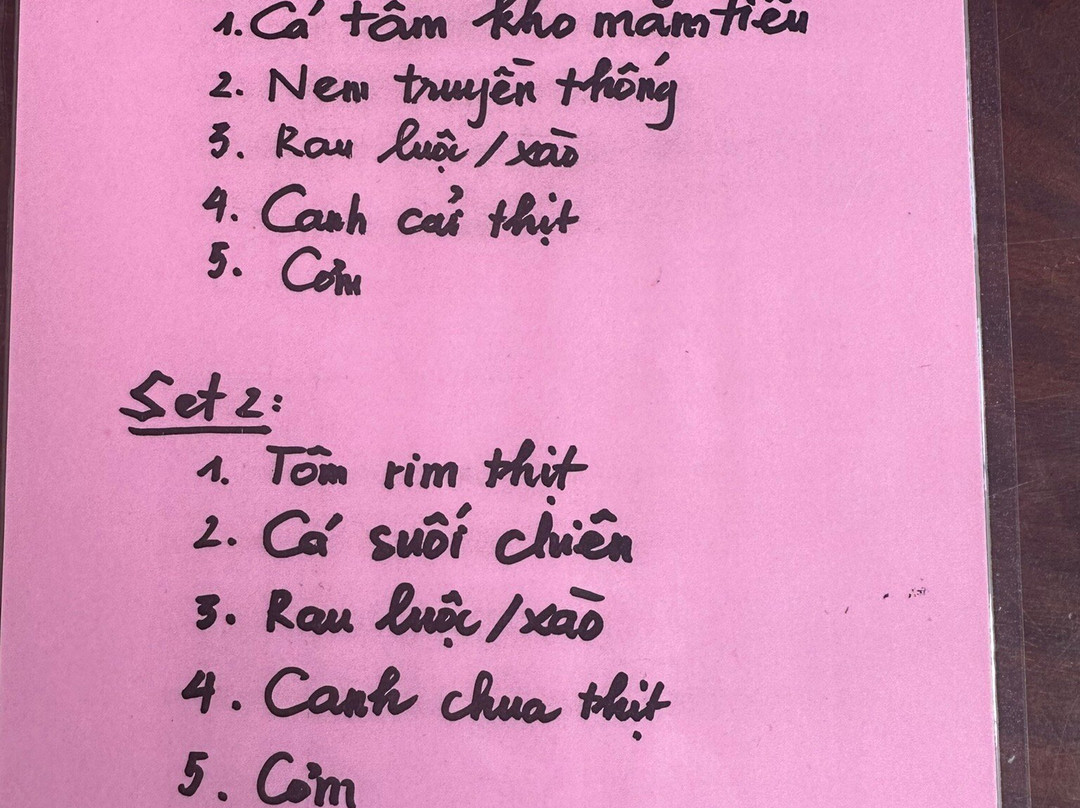 1. Cá tầm kho mắm tiêu
2. Nem truyền thống
3. Rau luộc / xào
4. Canh cải thịt
5. Cơm
Set 2:
1. Tôm rim thịt
2. Cá suối chiên
3. Rau luộc / xào
4. Canh chua thịt
5. Cơm